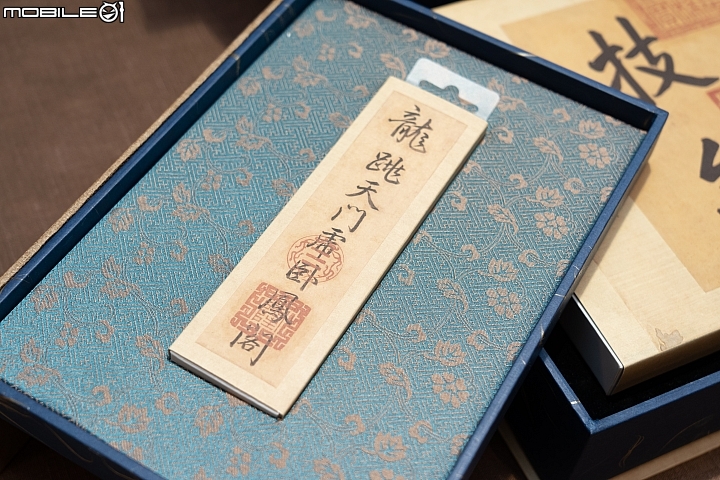 MOBILE01
龍跳天門虎臥鳳閣
技